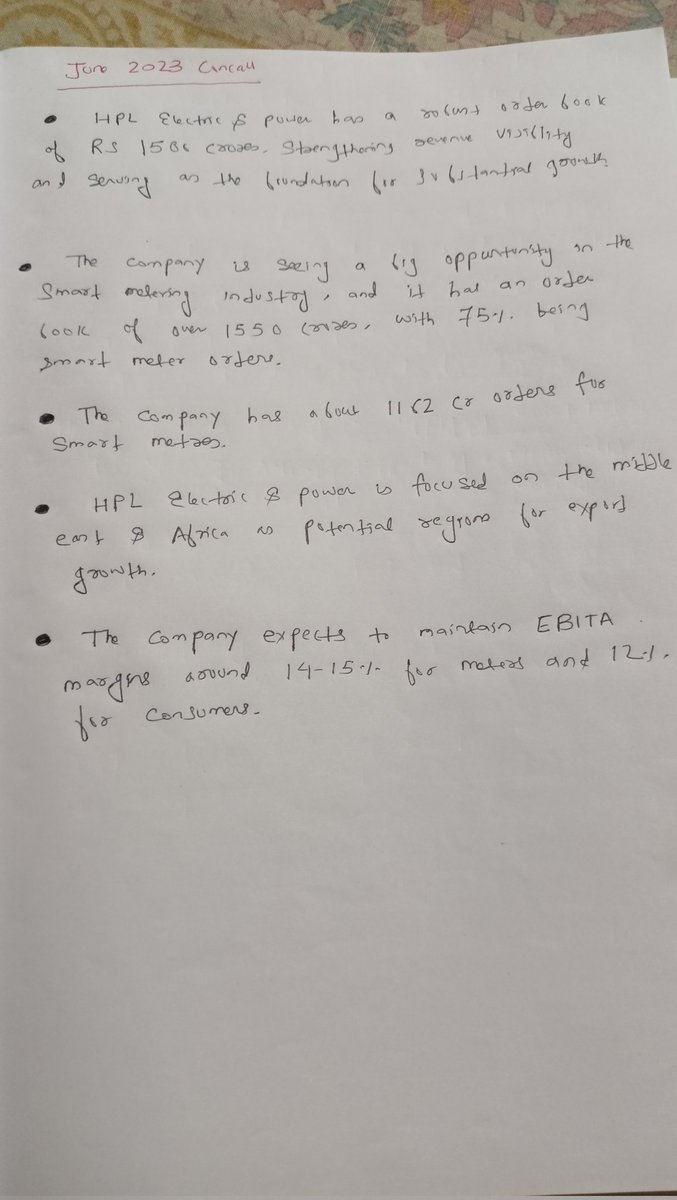 June 2023 Concall
• HPL Electric & power has a robust order book
of RS 15 crores. Strengthening revenue visiblity
and serving as the foundation for substantial growth
• The company is seeing a big oppurtunity in the
Smart metering industry, and it has an order
book of over 1550 crores, with 75%. being
smart meter orders.
• The Company has about 1162 cr orders for
Smart metres.
• HPL Electric & power is focused on the middle
east & Africa as potential regions for export
growth.
• The Company expects to maintain EBITA
margins around 14-15%. for meters and 12%.
for consumers.